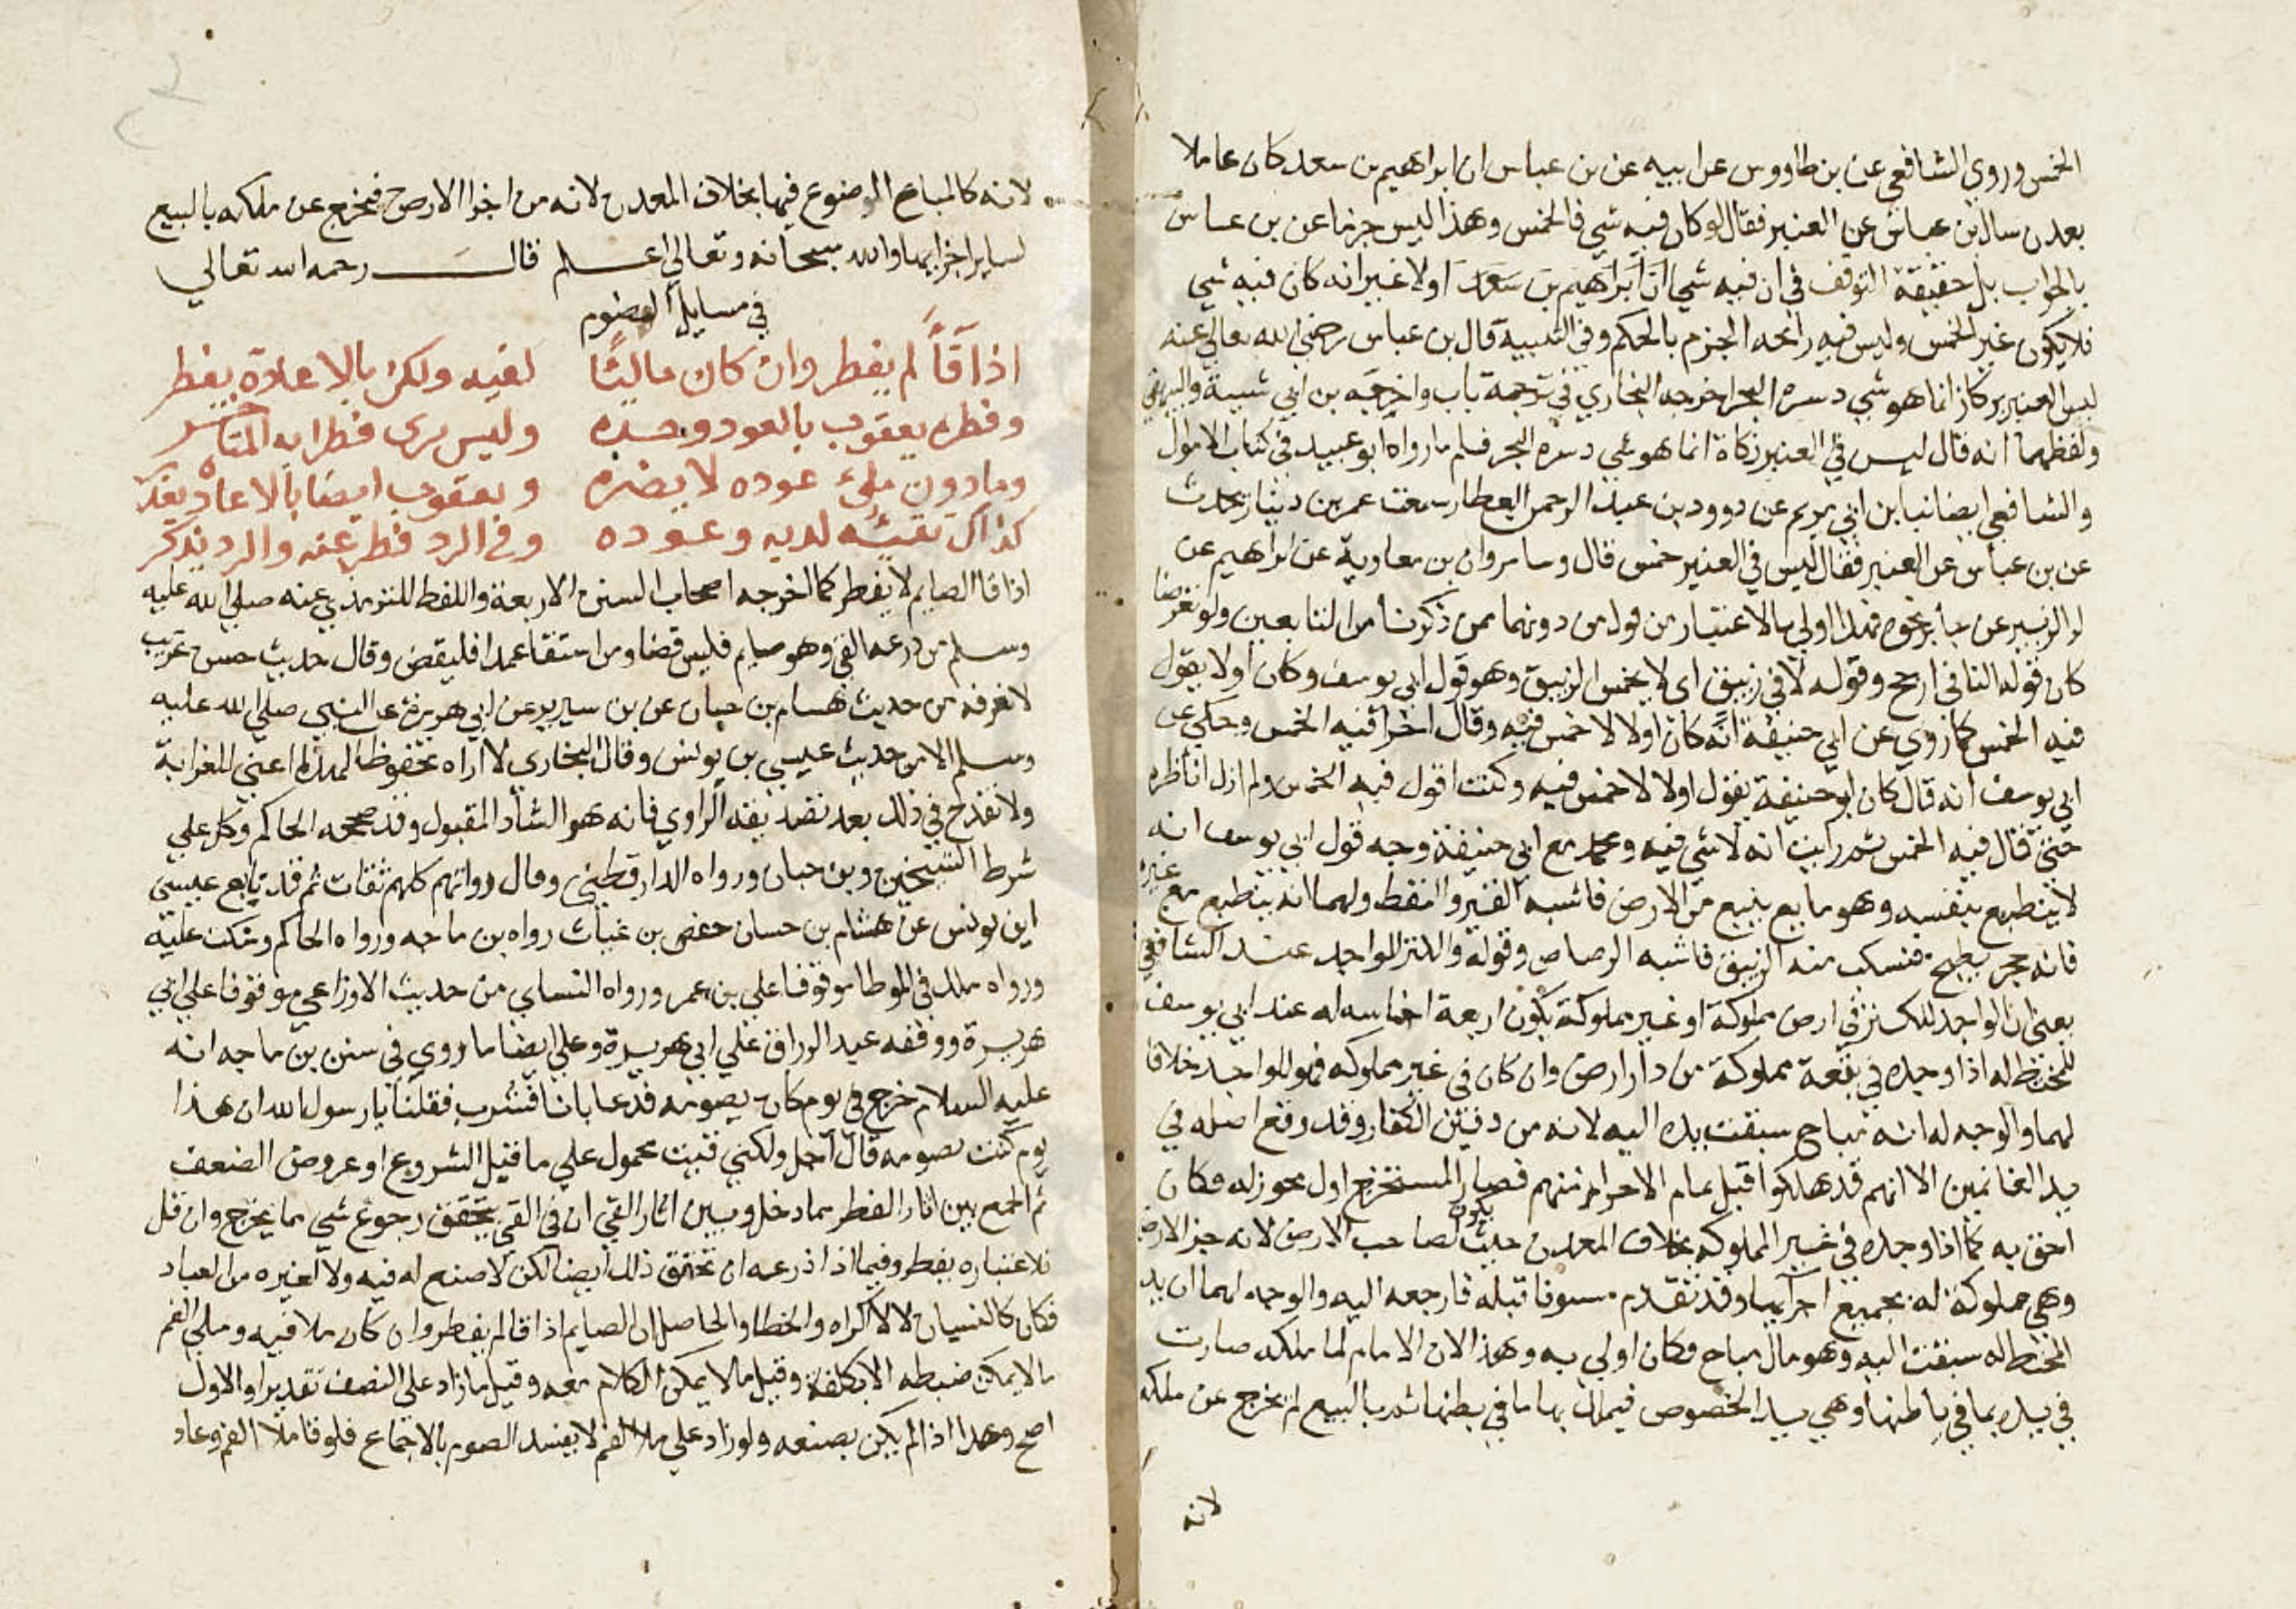 الخمس وروي الشافعي عن بن طاووس عن ابيه عن بن عباس ان ابراهيم بن سعد كان عاملا
بعدن سال بن عباس عن العنبر فقال لو كان فيه شي فالخمس وهذا ليس جزما عن بن عباس
بالجواب بل حقيقة التوقف في ان فيه شيا ان ابراهيم بن سعد اولا غير انه كان فيه شي
فلا يكون غير الخمس وليس فيه رائحه الجزم بالحكم وفي قال بن عباس رضي الله تعالي عنه
ليس العنبر بركاز انما هو شي دسره البحر اخرجه البخاري في ترجمة باب واخرجه بن ابي شيبة والبيهقي
ولفظهما انه قال ليس في العنبر زكاة انما هو شي دسره البحر فسلم ما رواه ابو عبيد في كتاب الاموال
والشافعي ايضا انبا بن ابي مريم عن دوود بن عبد الرحمن العطار سمعت عمر بن دينار يحدث
عن بن عباس عن العنبر فقال ليس في العنبر خمس قال وسا مروان بن معاوية عن ابراهيم عن
ابو الزبير عن جابر نحوه فهذا اولي بالاعتبار من قول من دونهما ممن ذكرنا من التابعين ولو تعرضا
كان قوله النافي ارجح وقوله لا في زيبق اي لا يخمس الزيبق وهو قول ابي يوسف وكان اولا يقول
فيه الخمس كما روي عن ابي حنيفة انه كان اولا لا خمس فيه وقال اخرا فيه الخمس وحكي عن
ابي يوسف انه قال كان ابو حنيفة يقول اولا لا خمس فيه وكنت اقول فيه الخمس ولم ازل اناظره
حتي قال فيه الخمس ثم رايت انه لا شي فيه ومحمد مع ابي حنيفة وجه قول ابي يوسف انه
لا ينطبع بنفسه وهو مايع ينبع من الارض فاشبه القير والنفط ولهما انه ينطبع مع غيره
فانه حجر يطبخ فنسكب منه الزيبق فاشبه الرصاص وقوله والكنز للواجد عند الشافعي
بعني ان الواجد للكنز في ارض مملوكة او غير مملوكة يكون اربعة اخماسه له عند ابي يوسف
للمختط له اذا وجده في بقعة مملوكة من دار ارض وان كان في غير مملوكه فهو للواجد خلافا
لهما والوجه له انه مباح سبقت يده اليه لانه من دفين الكفار وقد وقع اصله في
يد الغانمين الا انهم قد هلكوا قبل تمام الاحراز منهم فصار المستخرج اول محوز له فكان
احق به كما اذا وجده في غير المملوكه بخلاف المعدن حيث يكون لصاحب الارض لانه جز الارض
وهي مملوكة له بجميع اجزايها وقد تقدم مسوفا قبله فارجعه اليه والوجه لهما ان يد
المختط له سبقت اليه وهو مال مباح فكان اولي به وهذا لان الامام لما ملكه صارت
في يده بما في باطنها وهي يد الخصوص فيملك بها ما في بطنها ثم بالبيع لم يخرج عن ملكه
لانه
لانه كالمباع الموضوع فيها بخلاف المعدن لانه من اجزا الارض فيخرج عن ملكه بالبيع
لساير اجزايها والله سبحانه وتعالي اعلم قال رحمه الله تعالي
في مسايل الصوم
اذا قا لم يفطر وان كان ماليا لفيه ولكن بالاعادة يفطر
وفطره يعقوب بالعود وحده وليس يرى فطرا به
وما دون ملء عوده لا يضره ويعقوب ايضا بالاعادة
كذاك تقيئه لديه وعوده وفي الرد فطر عنه والرد يذكر
اذا قا الصايم لا يفطر كما اخرجه اصحاب السنن الاربعة واللفظ للترمذي عنه صلي الله عليه
وسلم من ذرعه القي وهو صايم فليس قضا ومن استقا عمدا فليقض وقال حديث حسن غريب
لا نعرفه من حديث هسام بن حبان عن بن سيرير عن ابي هريرة عن النبي صلي الله عليه
وسلم الا من حديث عيسي بن يونس وقال البخاري لا اراه محفوظا لهذا اعني للغرابة
ولا نقدح في ذلك بعد تصديقه الراوي فانه هو الشاذ المقبول وقد صححه الحاكم وكل علي
شرط الشيخين وبن حبان ورواه الدارقطني وقال رواتهم كلهم ثقات ثم قد تابع عيسي
ابن يونس عن هشام بن حسان حفص بن غياث رواه بن ماجه ورواه الحاكم وسكت عليه
ورواه ملك في الموطا موقوفا علي بن عمر ورواه النساي من حديث الاوزاعي موقوفا علي ابي
هريرة ووقفه عبد الرزاق علي ابي هريرة وعلي ايضا ما روي في سنن بن ماجه انه
عليه السلام خرج في يوم كان يصومه فدعا بانا فشرب فقلنا يا رسول الله ان هذا
يوم كنت تصومه قال اجل ولكني قيت محمول علي ما قبل الشروع او عروض الضعف
ثم الجمع بين اثار الفطر مما دخل وبين اثار القي ان في القي يتحقق رجوع شي مما يخرج وان قل
فلاعتباره يفطر وفيما اذا ذرعه ان تحقق ذلك ايضا لكن لا صنع له فيه ولا لغيره من العباد
فكان كالنسيان لا لاكراه والخطا والحاصل ان الصايم اذا قا لم يفطر وان كان ملا فيه وملي الفم
مالا يمكن ضبطه الا بكلفة وقيل ما لا يمكن الكلام معه وقيل ما زاد علي النصف تقديرا والاول
اصح وهذا اذا لم يكن بصنعه ولو زاد علي ملا الفم لا يفسد الصوم بالاجماع فلو قا ملا الفم وعاد